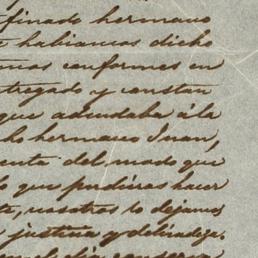 finado hermano
habiamos dicho
conformes en
tregado y constan
que adeudaba á la
ho hermano Juan,
enta del modo que
lo que pudieras hacer
nosotros lo dejamos
justicia y delicadeza.